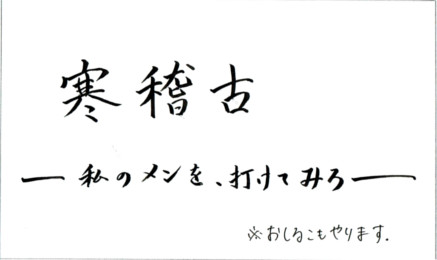 寒稽古
― 私のメンを、打けてみろ ―
※おしるこもやります.